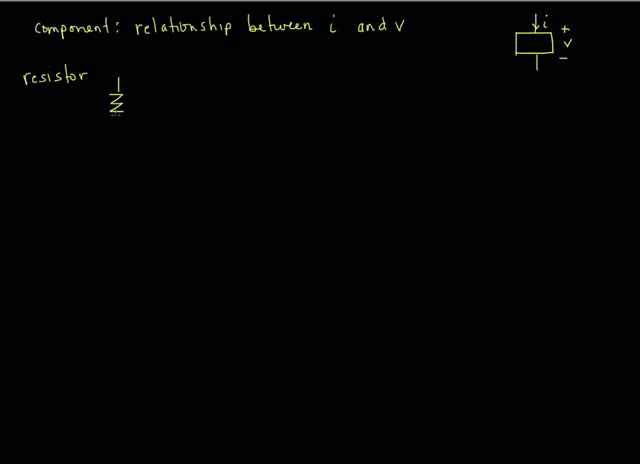 component: relationship between i and v
i
+
v
−
resistor